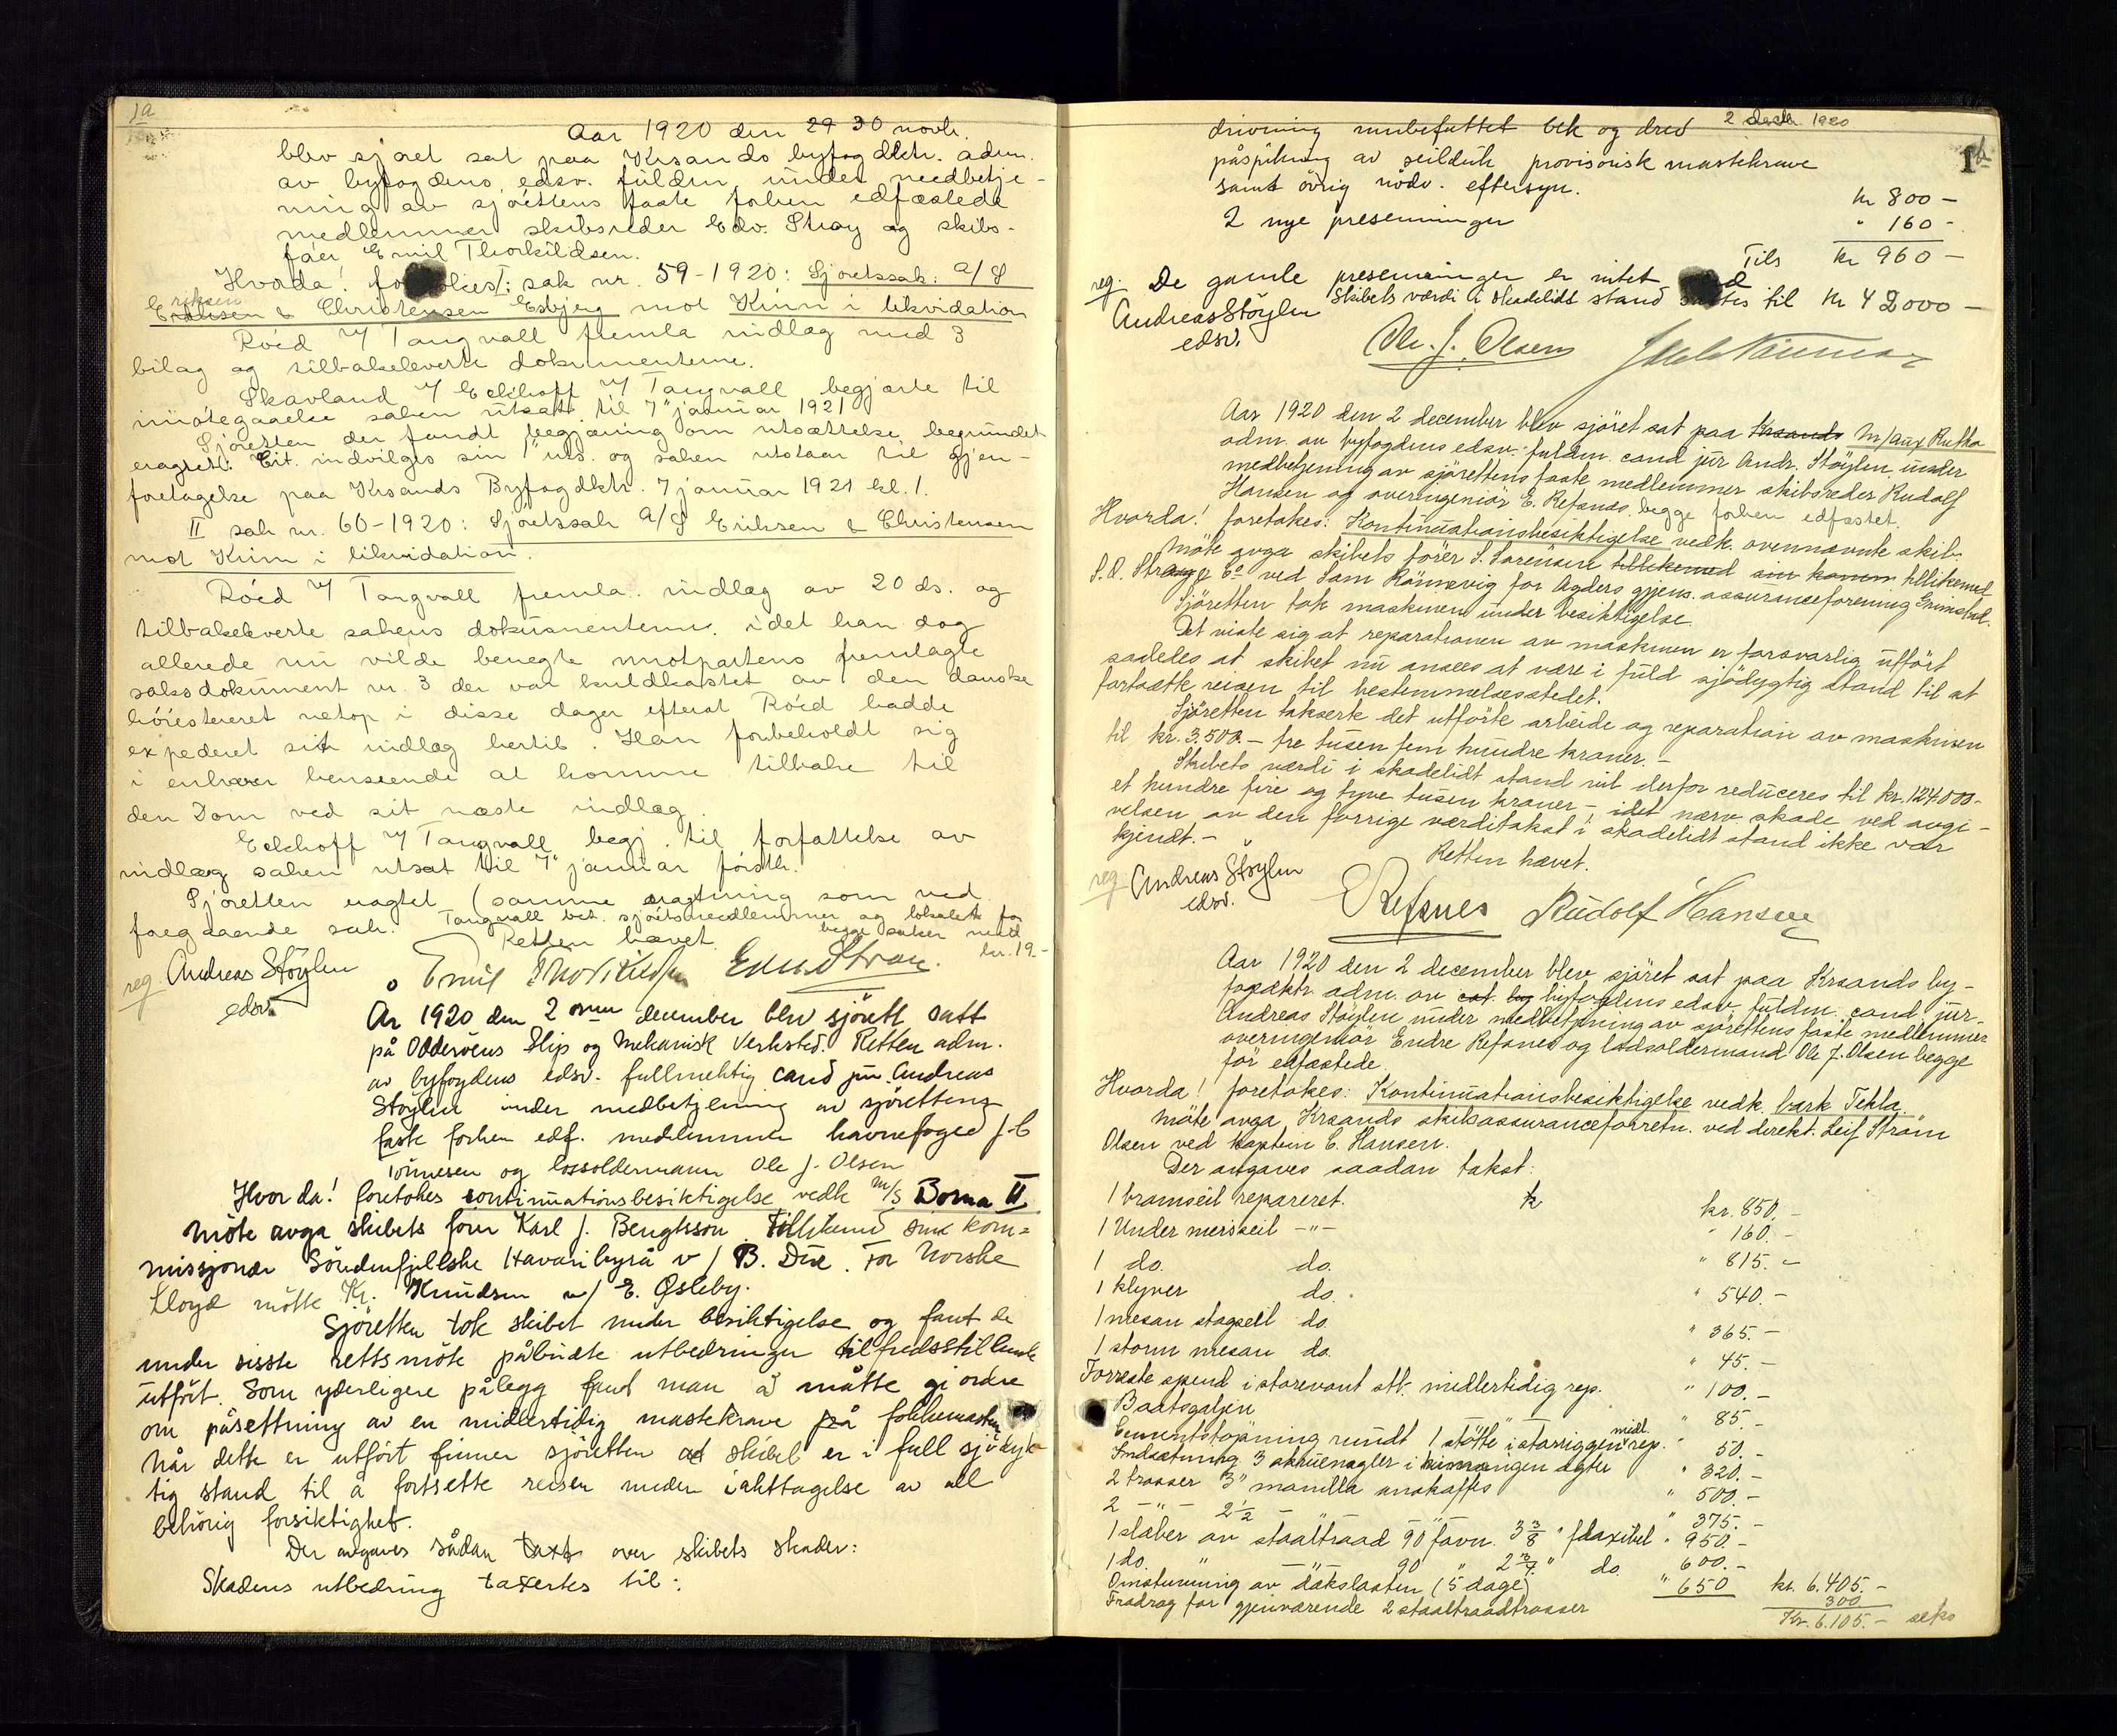 1a
Aar 1920 den 29 30 novb.
blev sjøret sat paa Krsands byfogdktr. adm.
av byfogdens edsv. fuldm. under medbetje-
ning av sjørettens faste forhen edfæstede
medlemmer skibsreder Edv. Stray og skibs-
fører Emil Thorkildsen.
Hvorda! I: sak nr. 59-1920: Sjøretssak: A/S
Eriksen & Christensen Esbjerg mot Krinn i likvidation
Röed v/ Tangvall fremla indlag med 3
bilag og tilbakeleverte dokumenterne.
Skavland v/ Eckhoff v/ Tangvall begjærte til
imøtegaaelse saken utsat til 7" januar 1921
Sjøretten der fandt begjæring om utsættelse begrundet
eragtet: Cit. indvilges sin 1" uts. og saken utstaar til gjen-
foretagelse paa Krsands Byfogdktr. 7 januar 1921 kl. 1.
II sak nr. 60-1920: Sjøretssak A/S Eriksen & Christensen
mot Krinn i likvidation.
Röed v/ Tangvall fremla indlag av 20 ds. og
tilbakeleverte sakens dokumenterne, idet han dog
allerede nu vilde benegte motpartens fremlagte
saksdokument nr. 3 der var kuldkastet av den danske
höiesteret netop i disse dager efterat Röed hadde
expederet sit indlag hertil. Han forbeholdt sig
i enhver henseende at komme tilbake til
den Dom ved sit næste indlag.
Eckhoff v/ Tangvall begj. til forfattelse av
indlæg saken utsat til 7" januar förstk.
Sjøretten eragtet (samme eragtning som ved
foregaaende sak. Tangvall bet. sjøretsmedlemmer og lokalet for
Retten hævet. begge saker med
kr. 19.-
reg. Andreas Stöylen
edsv.
Emil Thorkildsen Edv. Stray.
År 1920 den 2 nnen december blev sjörett satt
på Odderöens Slip og Mekanisk Verksted. Retten adm.
av byfogdens edsv. fullmektig cand jur. Andreas
Stöylen under medbetjening av sjörettens
faste forhen edf. medlemmer havnefoged J. C
Tönnesen og losoldermann Ole J. Olsen
Hvor da! foretokes continuationsbesiktigelse vedk m/s Borna II
Möte avga skibets förer Karl J. Bengtsson tillikemed sin kom=
missjonær Söndenfjellske Havaribyrå v/ B. Due. For Norske
Lloyd mötte Kr. Knudsen v/ E. Øsleby.
Sjöretten tok skibet under besiktigelse og fant de
under sisste rettsmöte påbudte utbedringer tilfredsstillende
utfört. Som yderligere pålegg fant man å måtte gi ordre
om påsettning av en midlertidig mastekrave på fokkemasten
Når dette er utfört finner sjöretten at skibet er i full sjödyk-
tig stand til å fortsette reisen under iakttagelse av all
behörig forsiktighet.
Der avgaves sådan taxt over skibets skader:
Skadens utbedring taxertes til:
2 decb. 1920
1b
drivning rundt bek og drev
påspikring av seilduk provisorisk mastekrave
samt övrig nödv. eftersyn. kr 800 -
2 nye presenninger " 160 -
Tils kr 960 -
De gamle presenninger er intet
Skibets værdi i skadelidt stand til kr 42000 -
reg. Andreas Stöylen
edsv.
Ole. J. Olsen
Aar 1920 den 2 december blev sjöret sat paa Krsands M/aux Rutha
adm. av byfogdens edsv. fuldm. cand jur Andr. Stöylen under
medbetjening av sjörettens faste medlemmer skibsreder Rudolf
Hansen og overingeniör E. Refsnes begge forhen edfæstet.
Hvorda! foretokes: Kontinuationsbesiktigelse vedk. ovennævnte skib
Möte avga skibets förer S. Sörensen tillikemed sin komm tillikemed
S. O. Stray & Co ved Sam Rönnevig for Agders gjens. assuranceforening Grimstad.
Sjöretten tok maskinen under besiktigelse.
Det viste sig at reparationen av maskinen er forsvarlig utfört
saaledes at skibet nu ansees at være i fuld sjödygtig stand til at
fortsætte reisen til bestemmelsesstedet.
Sjöretten takserte det utförte arbeide og reparation av maskinen
til kr. 3.500.- tre tusen fem hundre kroner.-
Skibets værdi i skadelidt stand vil derfor reduceres til kr. 124.000.-
et hundre fire og tyve tusen kroner - idet nærv. skade ved avgi-
velsen av den forrige værditakst i skadelidt stand ikke var
kjendt.-
Retten hævet.
reg. Andreas Stöylen
edsv.
E Refsnes Rudolf Hansen
Aar 1920 den 2 december blev sjöret sat paa Krsands by-
fogdktr. adm. av byfogdens edsv. fuldm. cand. jur.
Andreas Stöylen under medbetjening av sjörettens faste medlemmer
overingeniör Endre Refsnes og lodsoldermand Ole J. Olsen begge
för edfæstede.
Hvorda! foretokes: Kontinuationsbesiktigelse vedk. bark Tekla.
Möte avga Krsands skibsassuranceforretn. ved direkt. Leif Ström
Olsen ved kaptein C. Hansen.
Der avgaves saadan takst:
1 bramseil repareret. kr. 850.-
1 Under mersseil -"- " 160.-
1 do. do. " 815.-
1 klyver do. " 540.-
1 mesan stagseil do. " 365.-
1 storm mesan do. " 45.-
Forreste spend i storevant stb. midlertidig rep. " 100.-
Baatsgaljen " 85.-
Cementstöpning rundt 1 stötte i storriggen midl. rep. " 50.-
Indsætning 3 skruenagler i agter " 320.-
2 trosser 3" manilla anskaffes " 500.-
2 -"- 2 1/2 -"- " 375.-
1 slæber av staaltraad 90 favn. 3 3/8 " flaxibel " 950.-
1 do. " -"- 90 " 2 3/4 " do. 600.-
Omstuvning av dækslasten (5 dage) " 650 kr. 6.405.-
Fradrag for gjenværende 2 staaltraadtrosser 300
Kr. 6.105.- seks